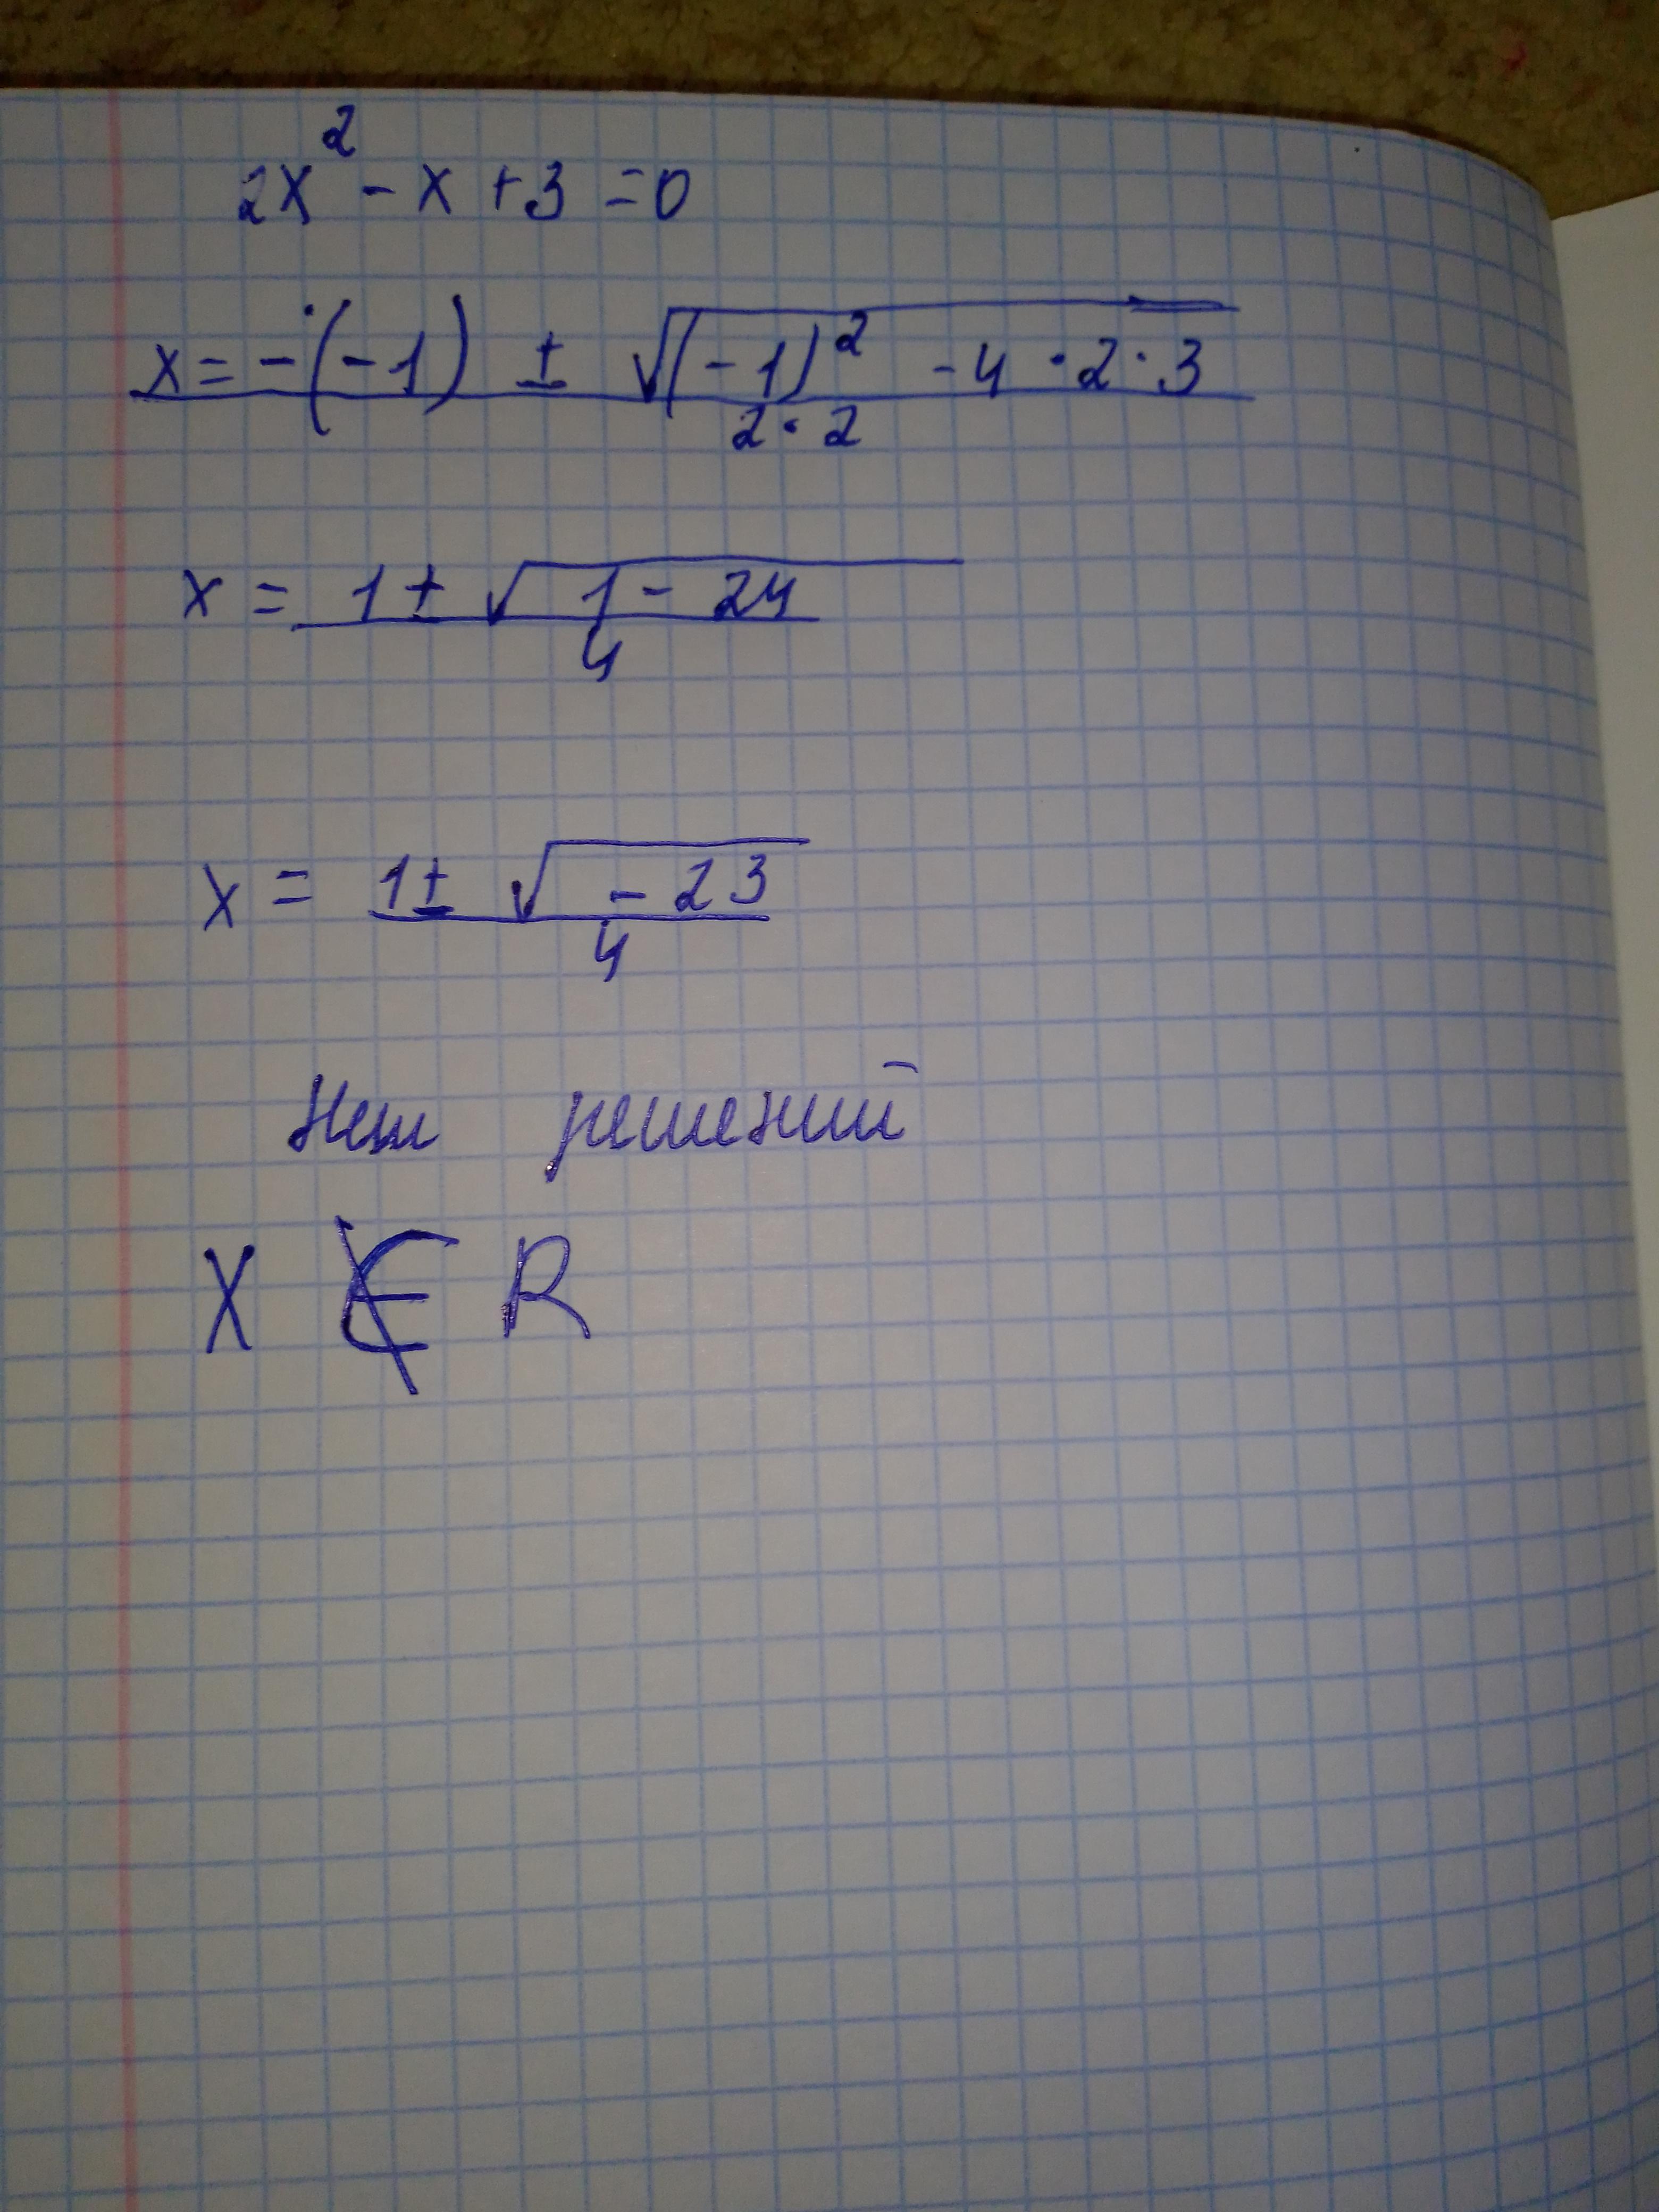 2x² - x + 3 = 0
x = -(-1) ± √((-1)² - 4 · 2 · 3) / 2 · 2
x = 1 ± √(1 - 24) / 4
x = 1 ± √(-23) / 4
Нет решений
X ∉ R